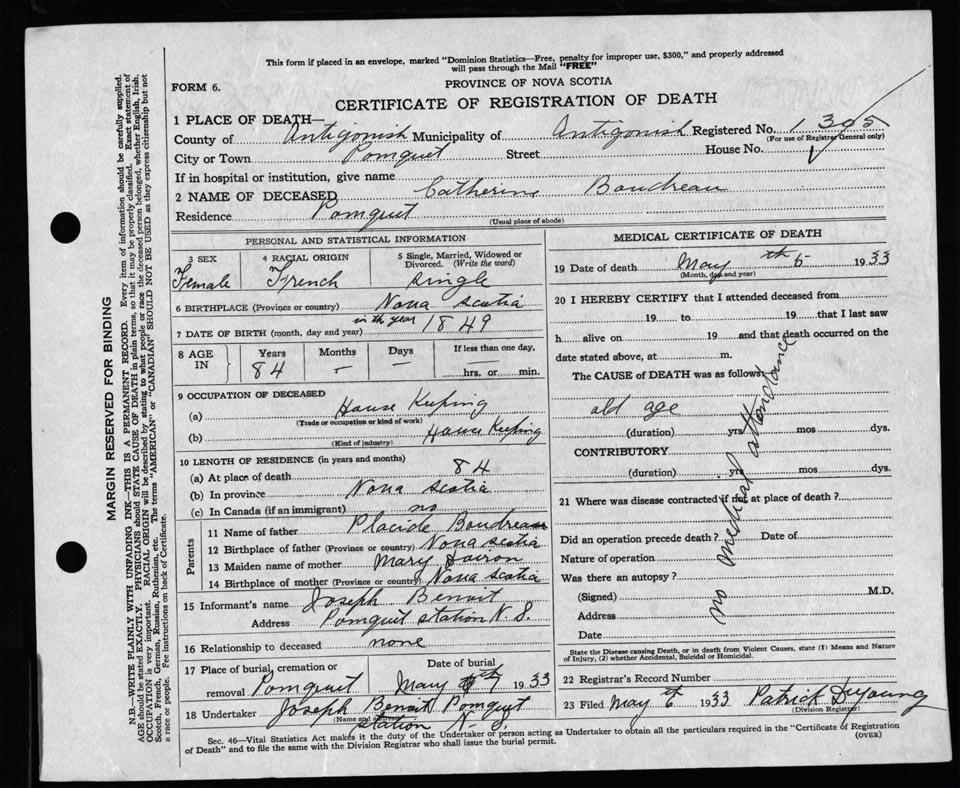 This form if placed in an envelope, marked "Dominion Statistics—Free, penalty for improper use, $300," and properly addressed
will pass through the Mail "FREE"
FORM 6.
PROVINCE OF NOVA SCOTIA
CERTIFICATE OF REGISTRATION OF DEATH
1 PLACE OF DEATH—
County of Antigonish Municipality of Antigonish Registered No. 1305
(For use of Registrar General only)
City or Town Pomquet Street House No.
If in hospital or institution, give name
2 NAME OF DECEASED Catherine Boudreau
Residence Pomquet
(Usual place of abode)
PERSONAL AND STATISTICAL INFORMATION
3 SEX Female
4 RACIAL ORIGIN French
5 Single, Married, Widowed or
Divorced. (Write the word)
single
6 BIRTHPLACE (Province or country) Nova Scotia
7 DATE OF BIRTH (month, day and year) in the year 1849
8 AGE IN
Years Months Days If less than one day,
84 — — hrs. or min.
9 OCCUPATION OF DECEASED
(a) House Keeping
(Trade or occupation or kind of work)
(b) House Keeping
(Kind of industry)
10 LENGTH OF RESIDENCE (in years and months)
(a) At place of death 84
(b) In province Nova Scotia
(c) In Canada (if an immigrant) no
Parents
11 Name of father Placide Boudreau
12 Birthplace of father (Province or country) Nova Scotia
13 Maiden name of mother Mary
14 Birthplace of mother (Province or country) Nova Scotia
15 Informant's name Joseph Benoit
Address Pomquet Station N. S.
16 Relationship to deceased none
17 Place of burial, cremation or
removal Pomquet
Date of burial
May 7 1933
18 Undertaker Joseph Benoit Pomquet
(Name and address)
Station N. S.
MEDICAL CERTIFICATE OF DEATH
19 Date of death May th 5 1933
(Month, day and year)
20 I HEREBY CERTIFY that I attended deceased from
19 to 19 that I last saw
h alive on 19 and that death occurred on the
date stated above, at m.
The CAUSE of DEATH was as follows:
old age
(duration) yrs mos dys.
CONTRIBUTORY
(duration) yrs mos dys.
no medical attendance
21 Where was disease contracted if not at place of death?
Did an operation precede death? Date of
Nature of operation
Was there an autopsy?
(Signed) M.D.
Address
Date
State the Disease causing Death, or in death from Violent Causes, state (1) Means and Nature
of Injury, (2) whether Accidental, Suicidal or Homicidal.
22 Registrar's Record Number
23 Filed May 6th 1933 Patrick DeYoung
(Division Registrar)
Sec. 46—Vital Statistics Act makes it the duty of the Undertaker or person acting as Undertaker to obtain all the particulars required in the "Certificate of Registration
of Death" and to file the same with the Division Registrar who shall issue the burial permit.
(OVER)
MARGIN RESERVED FOR BINDING
N.B.—WRITE PLAINLY WITH UNFADING INK—THIS IS A PERMANENT RECORD. Every item of information should be carefully supplied.
AGE should be stated EXACTLY. PHYSICIANS should STATE CAUSE OF DEATH in plain terms, so that it may be properly classified. Exact statement of
OCCUPATION is very important. RACIAL ORIGIN will be described by stating to what people or race the deceased person belonged, whether English, Irish,
Scotch, French, German, Russian, Ruthenian, etc. The terms "AMERICAN" or "CANADIAN" SHOULD NOT BE USED as they express citizenship but not
a race or people. See instructions on back of Certificate.